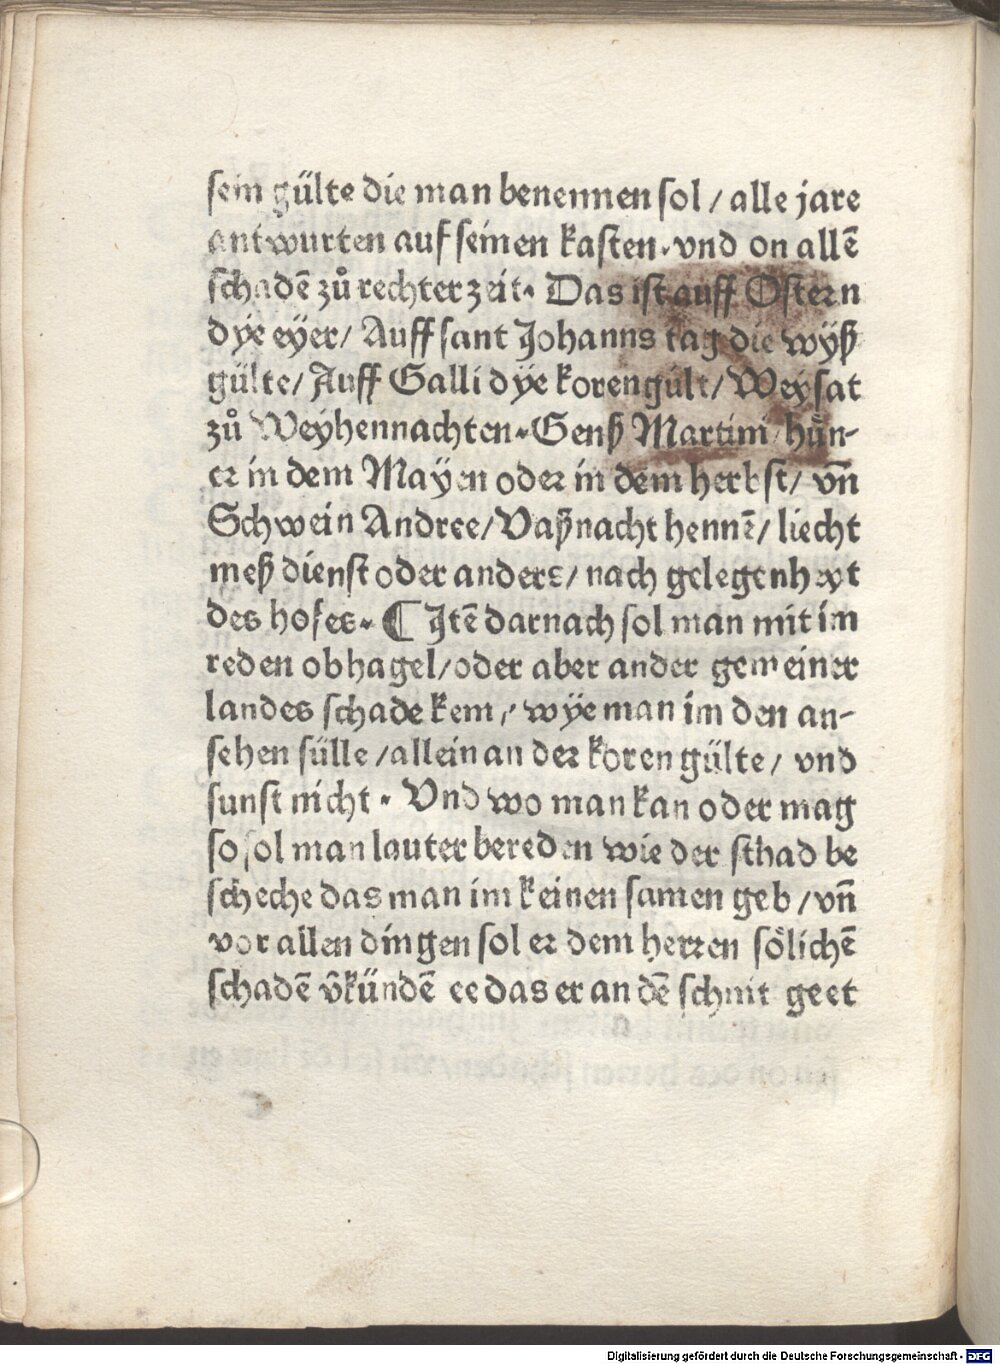 sein gülte die man benennen sol / alle jare
antwurten auf seinen kasten. vnd on allē
schadē zů rechter zeit. Das ist auff Ostern
dÿe eÿer / Auff sant Johanns tag die wÿß
gülte / Auff Galli dÿe korengült / Weysat
zů Weyhennachten. Genß Martini / hün-
er in dem Maÿen oder in dem herbst / vn̄
Schwein Andree / Vaßnacht hennē / liecht
meß dienst oder anders / nach gelegenheyt
des hofes. ¶ Jtē darnach sol man mit im
reden ob hagel / oder aber ander gemeiner
landes schade kem / wÿe man im den an-
sehen sülle / allein an der koren gülte / vnd
sunst nicht. Vnd wo man kan oder mag
so sol man lauter bereden wie der schad be
scheche das man im keinen samen geb / vn̄
vor allen dingen sol er dem herren sölichē
schadē v̄kündē ee das er an dē schnit geet
Digitalisierung gefördert durch die Deutsche Forschungsgemeinschaft - DFG